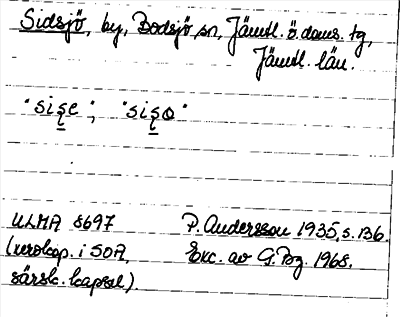 Sidsjö, by, Bodsjö sn, Jämtl. ö. doms. tg,
Jämtl. län.
"siʂe", "siʂo"
ULMA 8697 P. Andersson 1935, s. 136.
(xerokop. i SOA, Exc. av G. Bg. 1968.
särsk. kapsel).